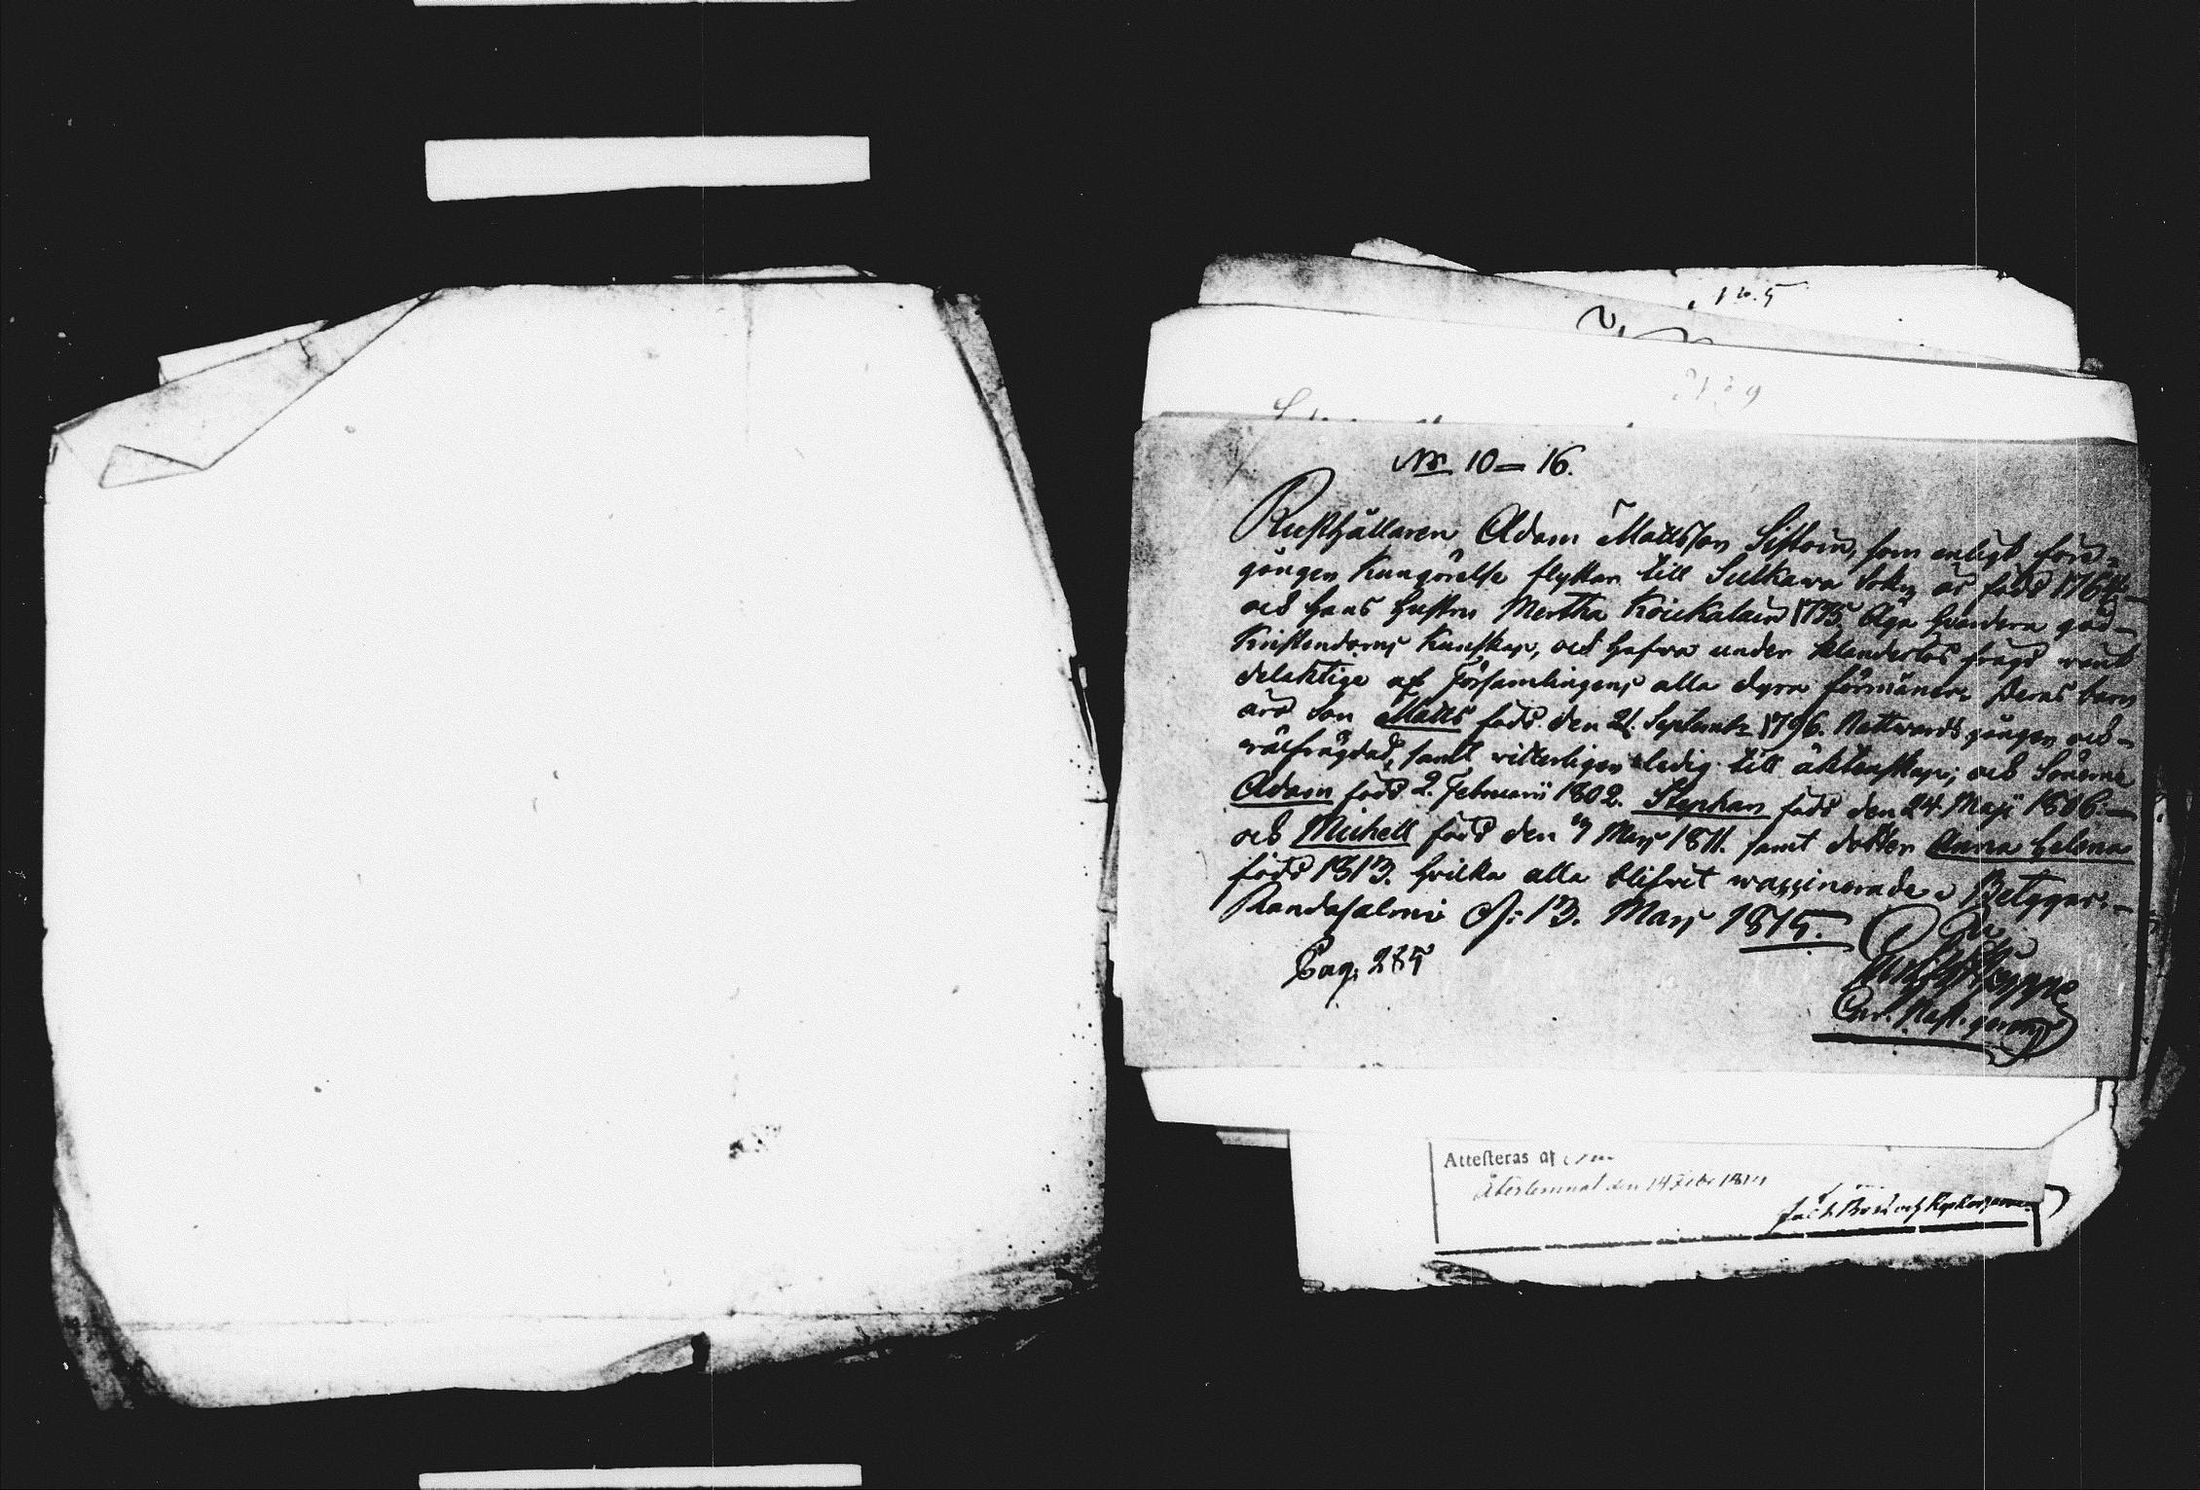 No. 5
2139
No 10 = 16.
Rusthållaren Adam Mattsson Sistoin, som enligt före-
gången Kungörelse flyttar till Sulkava Sokn är född 1764
och hans hustru Mertha 1775. Äga hvardera god
Kristendoms Kunskap, och hafva under klanderlös frägd varit
delaktige af Församlingens alla dyra förmåner. Deras barn
äro Son Matts född den 21. Septemb. 1796. Nattvardsgången och
välfrägdad, samt vitterligen ledig till äktenskap; och Sönerne
Adam född 2. Februarii 1802. Stephan född den 24. Maji 1806.
och Michell född den 7 Mars 1811. samt dotter Anna Helena
född 1813. hvilka alla blifvit vaccinerade. Betygar.
Randasalmi d. 13. Mars 1815.
Pag. 285
Attesteras af
Återlemnat den 14 Febr